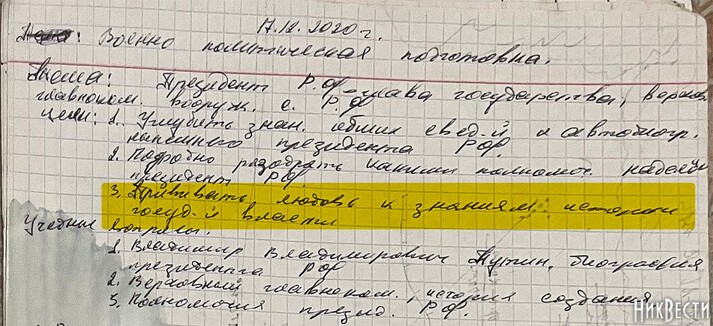 17.12.2020 г.
: Военно политическая подготовка.
Тема: Президент Р.Ф-глава государства, верхов.
главноком. вооруж. с. РФ
Цели: 1. Углубить знан. общих свед-й и автобиогр.
нынешнего президента РФ.
2. Подробно разобрать какими полномоч. наделён
президент РФ
3. Прививать любовь к знаниям истории
госуд-й власти
Учебные вопросы:
1. Владимир Владимирович Путин. Биография
президента РФ
2. Верховный главноком., история создания
3. Полномочия презид. РФ.
НикВести